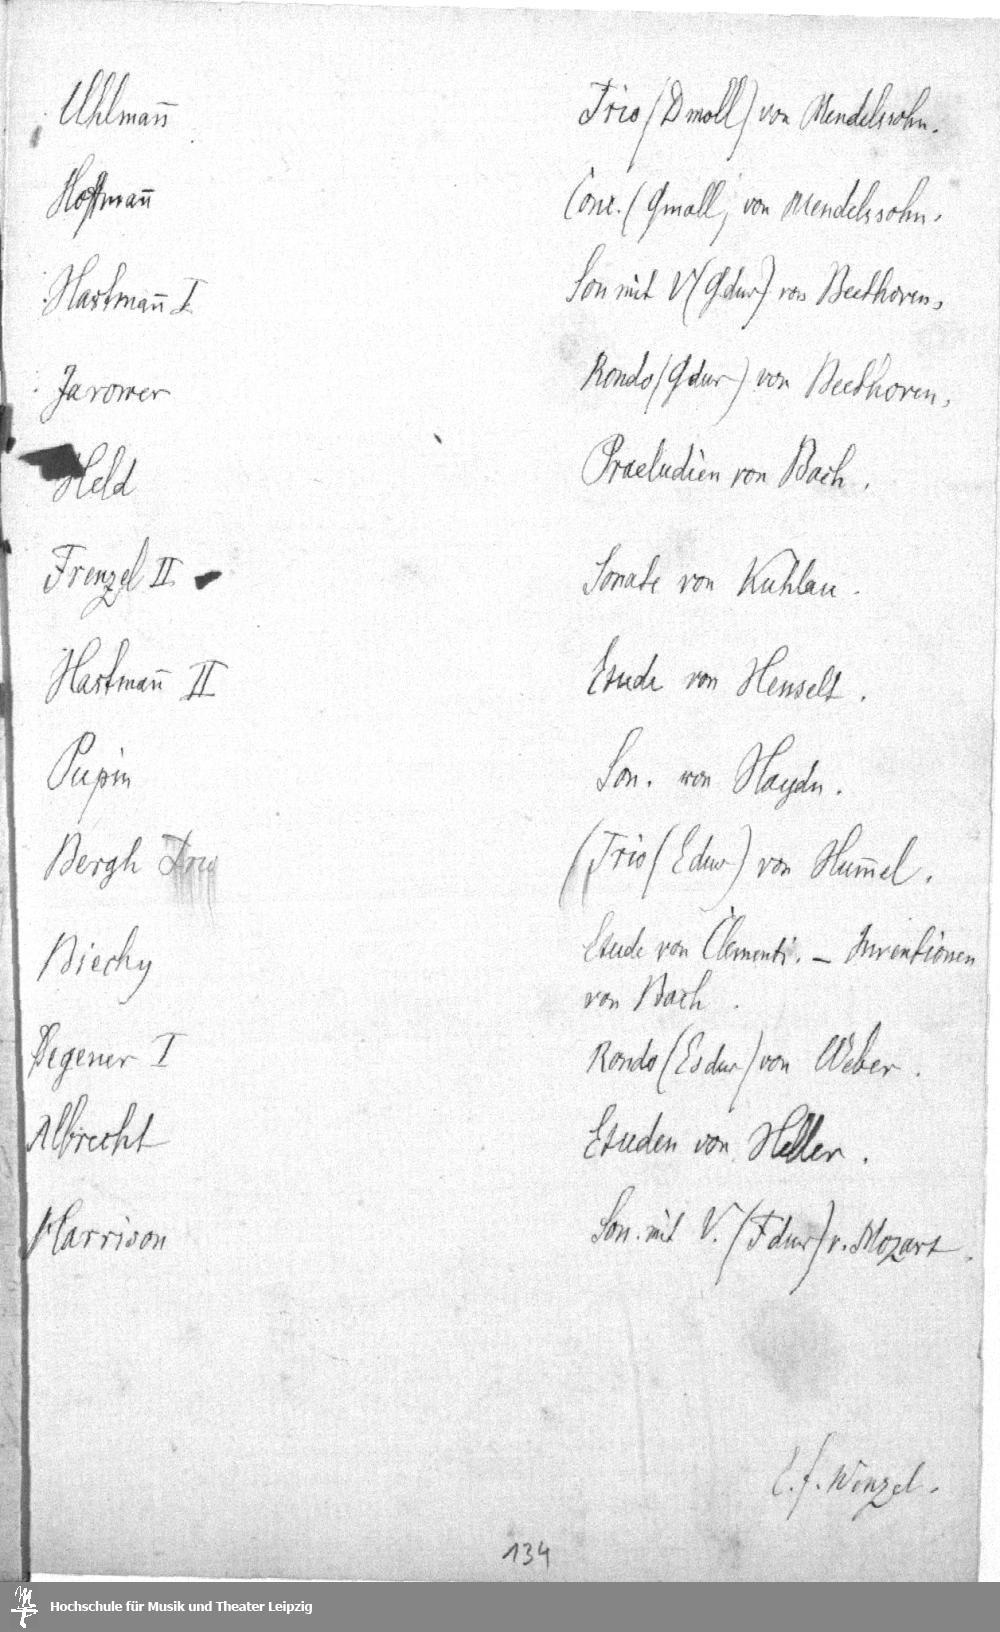 Uhlmañ Trio (D moll) von Mendelssohn.
Hoffmañ Conc. (Gmoll) von Mendelssohn.
Hartmañ I Son mit V (Gdur) von Beethoven.
Jarower Rondo (Gdur) von Beethoven.
Held Praeludien von Bach.
Frenzel II Sonate von Kuhlau.
Hartmañ II Etude von Henselt.
Pupin Son. von Haydn.
Bergh Trio (Trio (Edur) von Hum̄el.
Biechy Etude von Clementi. – Inventionen
von Bach.
Degener I Rondo (Esdur) von Weber.
Albrecht Etuden von Heller.
Harrison Son. mit V. (Fdur) v. Mozart.
E. f. Wenzel.
134
Hochschule für Musik und Theater Leipzig